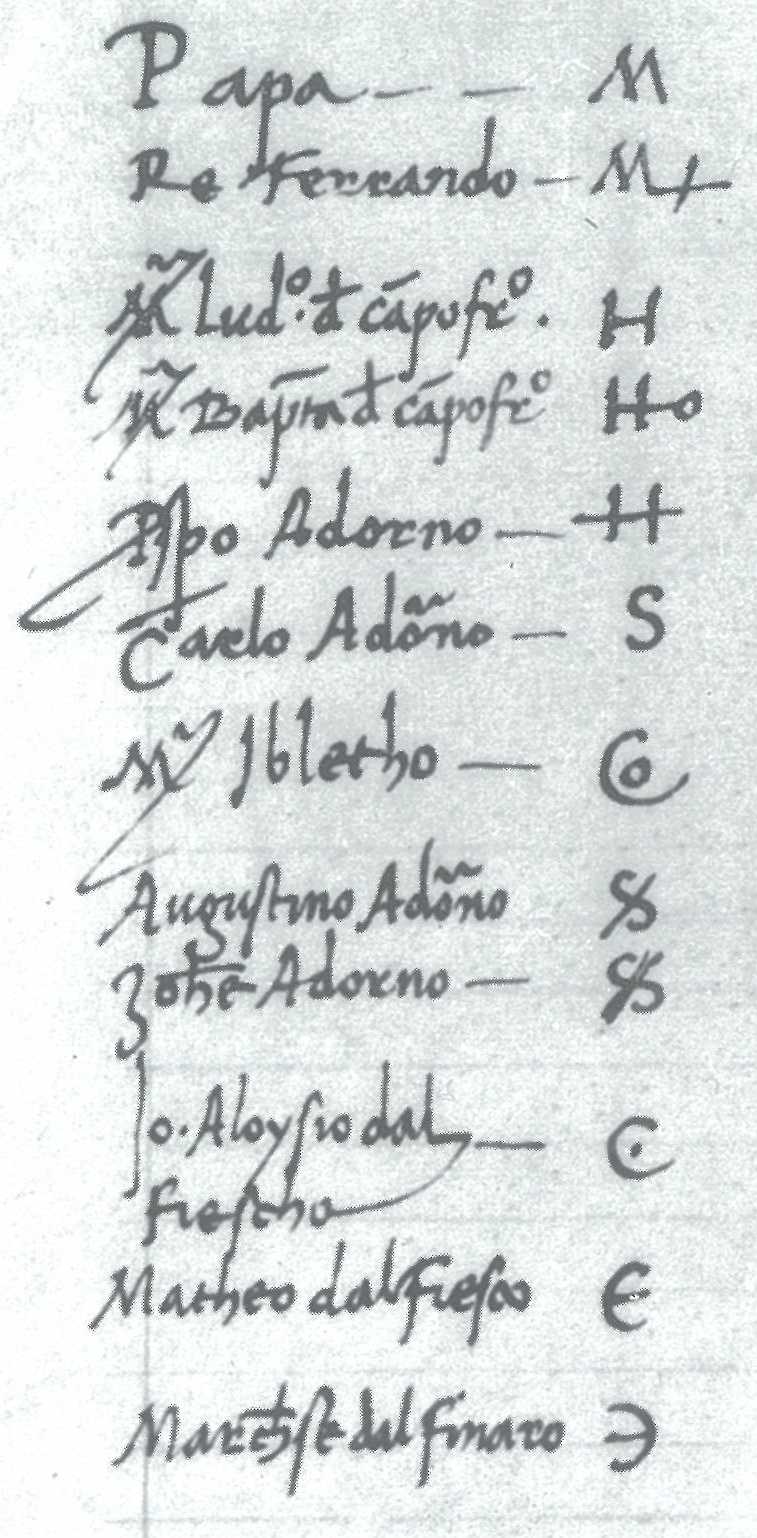 Papa — — M
Re Ferrando — M+
Mr̃ Lud.º d cāpofr.º H
Mr̃ Bap̄tā d cāpofrº Ho
Ph̄po Adorno — H
Carlo Adoñno — S
Mr̃ Ibletho —
Augustino Adoñno
Zohē Adorno —
Io. Aloysio dal —
fiescho
Matheo dal fiesco Є
Marchese dal finaro Э